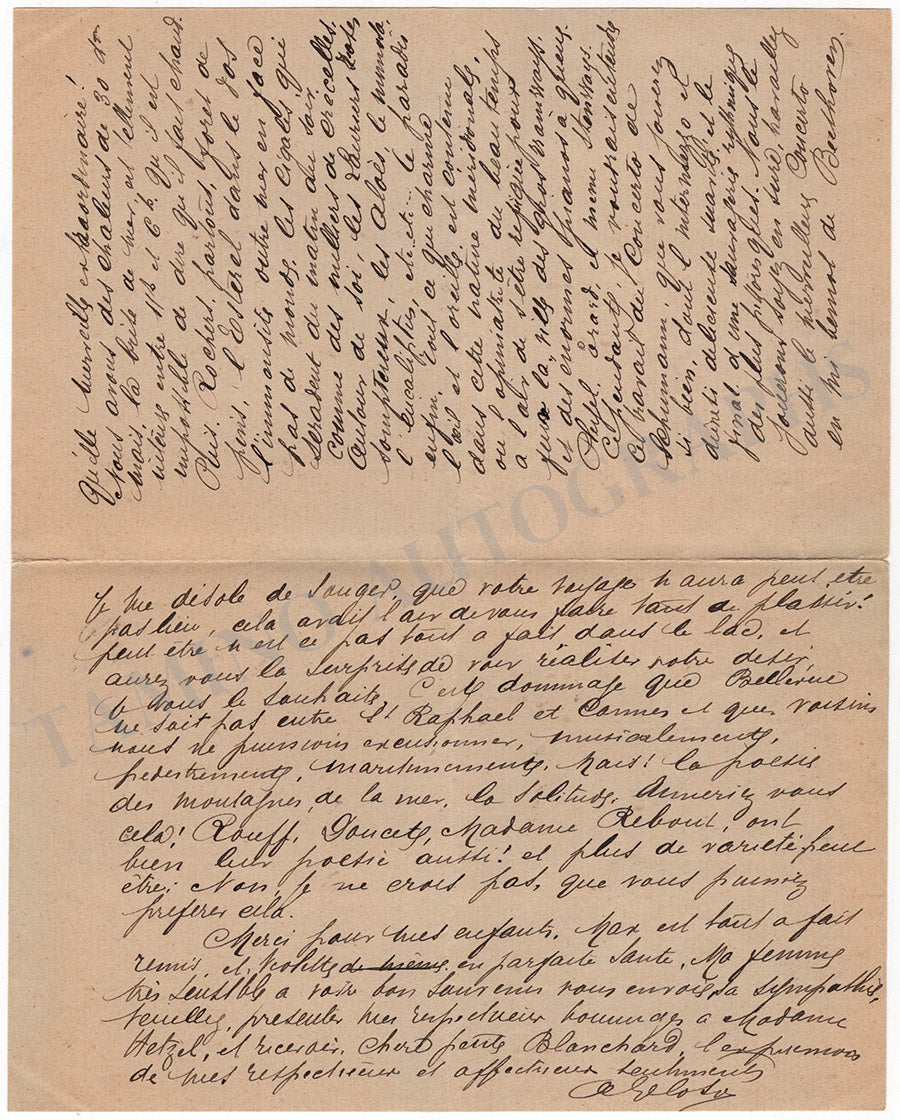 Quelle merveille extraordinaire!
Nous avons des chaleurs de 30 dm
mais la brise de mer, est tellement
intense entre 11h et 6h, qu'il est
impossible de dire qu'il fait chaud.
Puis Rochers, partout, foret de
pins, l'Estérel dans le dos
l'immensité outre mer en face
pas de monde, les cigales qui
seradent du matin du soir.
comme des milliers de crecelles.
autour de soi, les Lauriers roses
somptueux, les Aloès, le mimosa,
l'eucaliptus, etc etc. le paradis
enfin. Tout ce que charme
l'œil et l'oreille est contenu
dans cette nature méridionale,
ou l'opiniatreté du beau temps
a l'air de s'être refugié pour
fuir la ville des gros tramways.
et des enormes pianos à queue
Pleyel, Erard, et meme Steinway.
Cependant, je voudrais entendre
ce travail du Concerto de
Schumann que vous jouerez
si bien, dont l'intermezzo et
d'une delicieuse suavité, et le
final d'une sauvagerie rythmique
des plus pittoresques. Nous le
jouerons soyez en sure, travaillez
aussi le merveilleux Concerto
en mi bemol de Beethoven.
Je me désole de songer que votre voyage n'aura peut etre
pas lieu, cela avait l'air de vous faire tant de plaisir!
peut etre n'est ce pas tout a fait dans le lac, et
aurez vous la surprise de voir réaliser votre desir,
je vous le souhaite. C'est dommage que Bellevue
ne soit pas entre St Raphael et Cannes et que voisins
nous ne puissions excursionner, musicalement,
pedestrement, maritimement. Mais! la poesie
des montagnes, de la mer, la solitude, Aimeriez vous
cela! Rouff, Doucet, Madame Rebout, ont
bien leur poesie aussi! et plus de varieté peut
être, Non, je ne crois pas, que vous puissiez
préférer cela.
Merci pour mes enfants, Max est tout a fait
remis, et Violette de meme en parfaite santé, Ma femme
très sensible a votre bon souvenir vous envoie sa sympathie,
Veuillez, presenter mes respectueux hommages a Madame
Hetzel, et recevoir, chere petite Blanchard, l'expression
de mes respectueux et affectueux sentiments
A Geloso
TAMINO AUTOGRAPHS